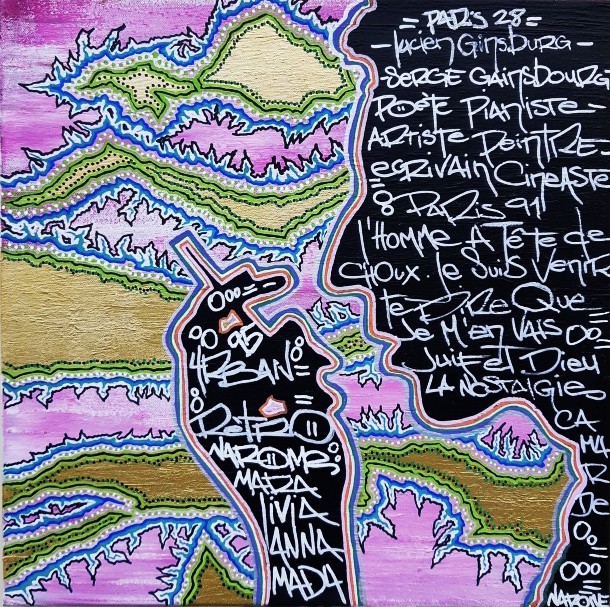 =PARIS 28=
-Lucien GinsBURG-
-SERGE GAINSBOURG
POÈTE PIANISTE-
ARTISTE PEINTRE-
=ECRIVAIN CINEASTE
PARIS 91
L'HOMME A TÊTE de
CHOUX. Je SUIS VENU
te DIRE QUE
Je M'EN VAIS
JUIF et DIEU
LA NOSTALGIE
CAMARADE
95
URBAN
RETRO
NAROME
MARA
LIVIA
ANNA
MADA
NAROME